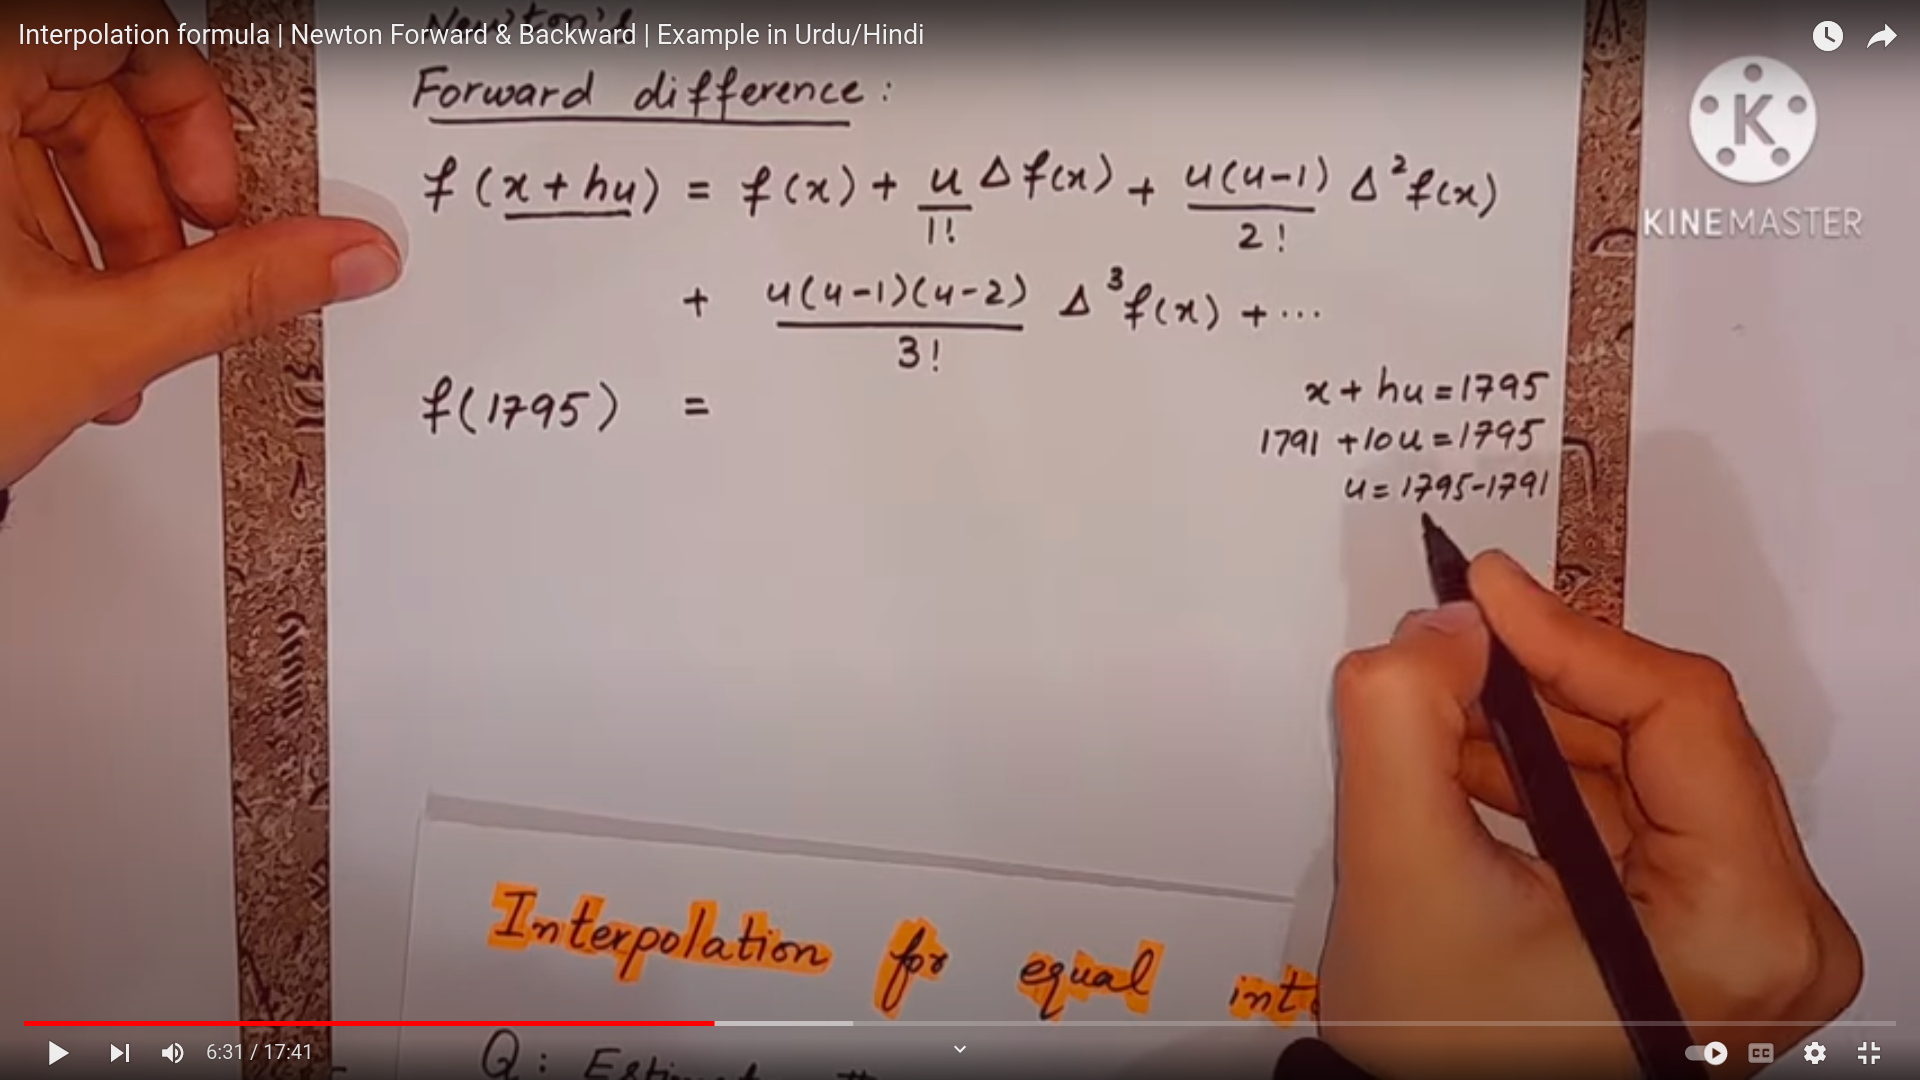 Interpolation formula | Newton Forward & Backward | Example in Urdu/Hindi
Newton's
Forward difference:
f(x+hu) = f(x) + u/1! Δf(x) + u(u-1)/2! Δ²f(x)
+ u(u-1)(u-2)/3! Δ³f(x) + ...
f(1795) =
x + hu = 1795
1791 + 10u = 1795
u = 1795-1791
KINEMASTER
Interpolation for equal
Q: Estimate
6:31 / 17:41
CC